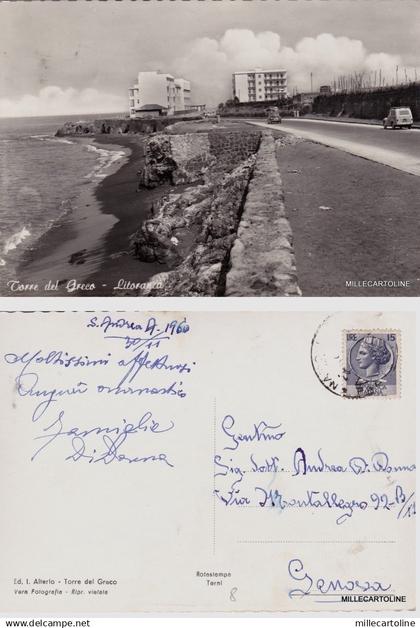 MILLECARTOLINE
Torre del Greco - Litoranea
MILLECARTOLINE
S. Andrea A. 1960
30/11
Moltissimi affettuosi
Auguri onomastico
Famiglia
Di Donna
LIRE 15
NA
Gentmo
Sig. dott. Andrea D. Donna
Via Montallegro 92-B/11
Genova
Ed. I. Alterio - Torre del Greco
Vera Fotografia - Ripr. vietata
Rotostampa
Terni
8
MILLECARTOLINE